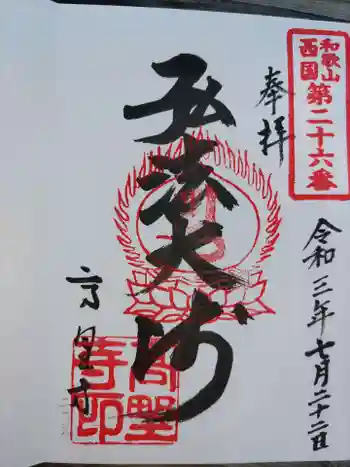 和歌山
西国
第二十六番
奉拝
令和三年七月二十二日
弘法大師
高野寺
高野
寺印